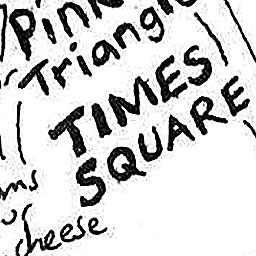 Pink
Triangle
TIMES
SQUARE
cheese